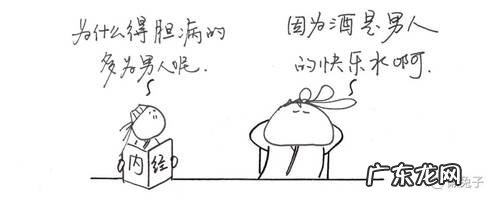 为什么得胆病的
多为男人呢.
因为酒是男人
的快乐水啊.
内经
广东龙网
GDLONG.COM